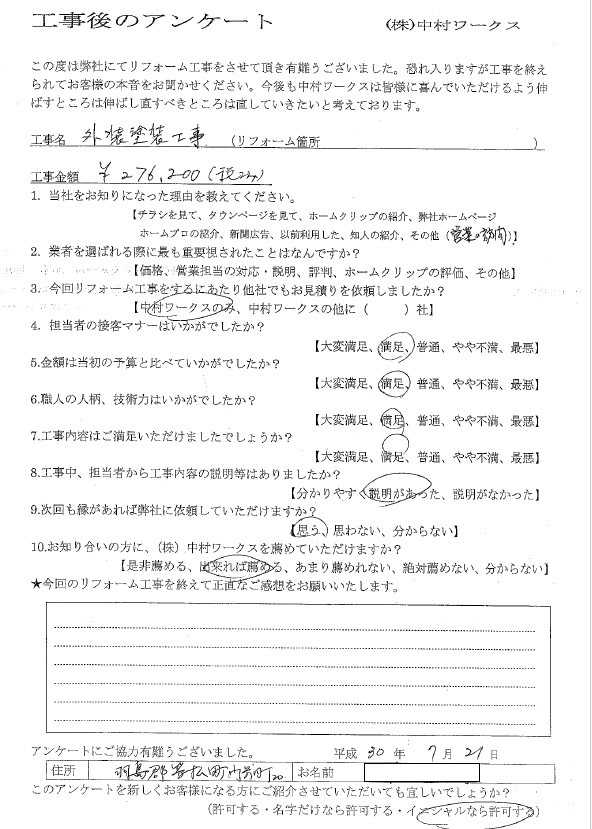 工事後のアンケート (株)中村ワークス
この度は弊社にてリフォーム工事をさせて頂き有難うございました。恐れ入りますが工事を終え
られてお客様の本音をお聞かせください。今後も中村ワークスは皆様に喜んでいただけるよう伸
ばすところは伸ばし直すべきところは直していきたいと考えております。
工事名 外装塗装工事 (リフォーム箇所 )
工事金額 ¥276,200(税込)
1. 当社をお知りになった理由を教えてください。
【チラシを見て、タウンページを見て、ホームクリップの紹介、弊社ホームページ
ホームプロの紹介、新聞広告、以前利用した、知人の紹介、その他(営業の訪問)】
2. 業者を選ばれる際に最も重要視されたことはなんですか?
【価格、営業担当の対応・説明、評判、ホームクリップの評価、その他】
3. 今回リフォーム工事をするにあたり他社でもお見積りを依頼しましたか?
【中村ワークスのみ、中村ワークスの他に( )社】
4. 担当者の接客マナーはいかがでしたか?
【大変満足、満足、普通、やや不満、最悪】
5.金額は当初の予算と比べていかがでしたか?
【大変満足、満足、普通、やや不満、最悪】
6.職人の人柄、技術力はいかがでしたか?
【大変満足、満足、普通、やや不満、最悪】
7.工事内容はご満足いただけましたでしょうか?
【大変満足、満足、普通、やや不満、最悪】
8.工事中、担当者から工事内容の説明等はありましたか?
【分かりやすく説明があった、説明がなかった】
9.次回も縁があれば弊社に依頼していただけますか?
【思う、思わない、分からない】
10.お知り合いの方に、(株)中村ワークスを薦めていただけますか?
【是非薦める、出来れば薦める、あまり薦めれない、絶対薦めない、分からない】
★今回のリフォーム工事を終えて正直なご感想をお願いいたします。
アンケートにご協力有難うございました。 平成 30 年 7 月 21 日
住所 羽島郡笠松町 町20 お名前
このアンケートを新しくお客様になる方にご紹介させていただいても宜しいでしょうか?
(許可する・名字だけなら許可する・イニシャルなら許可する)